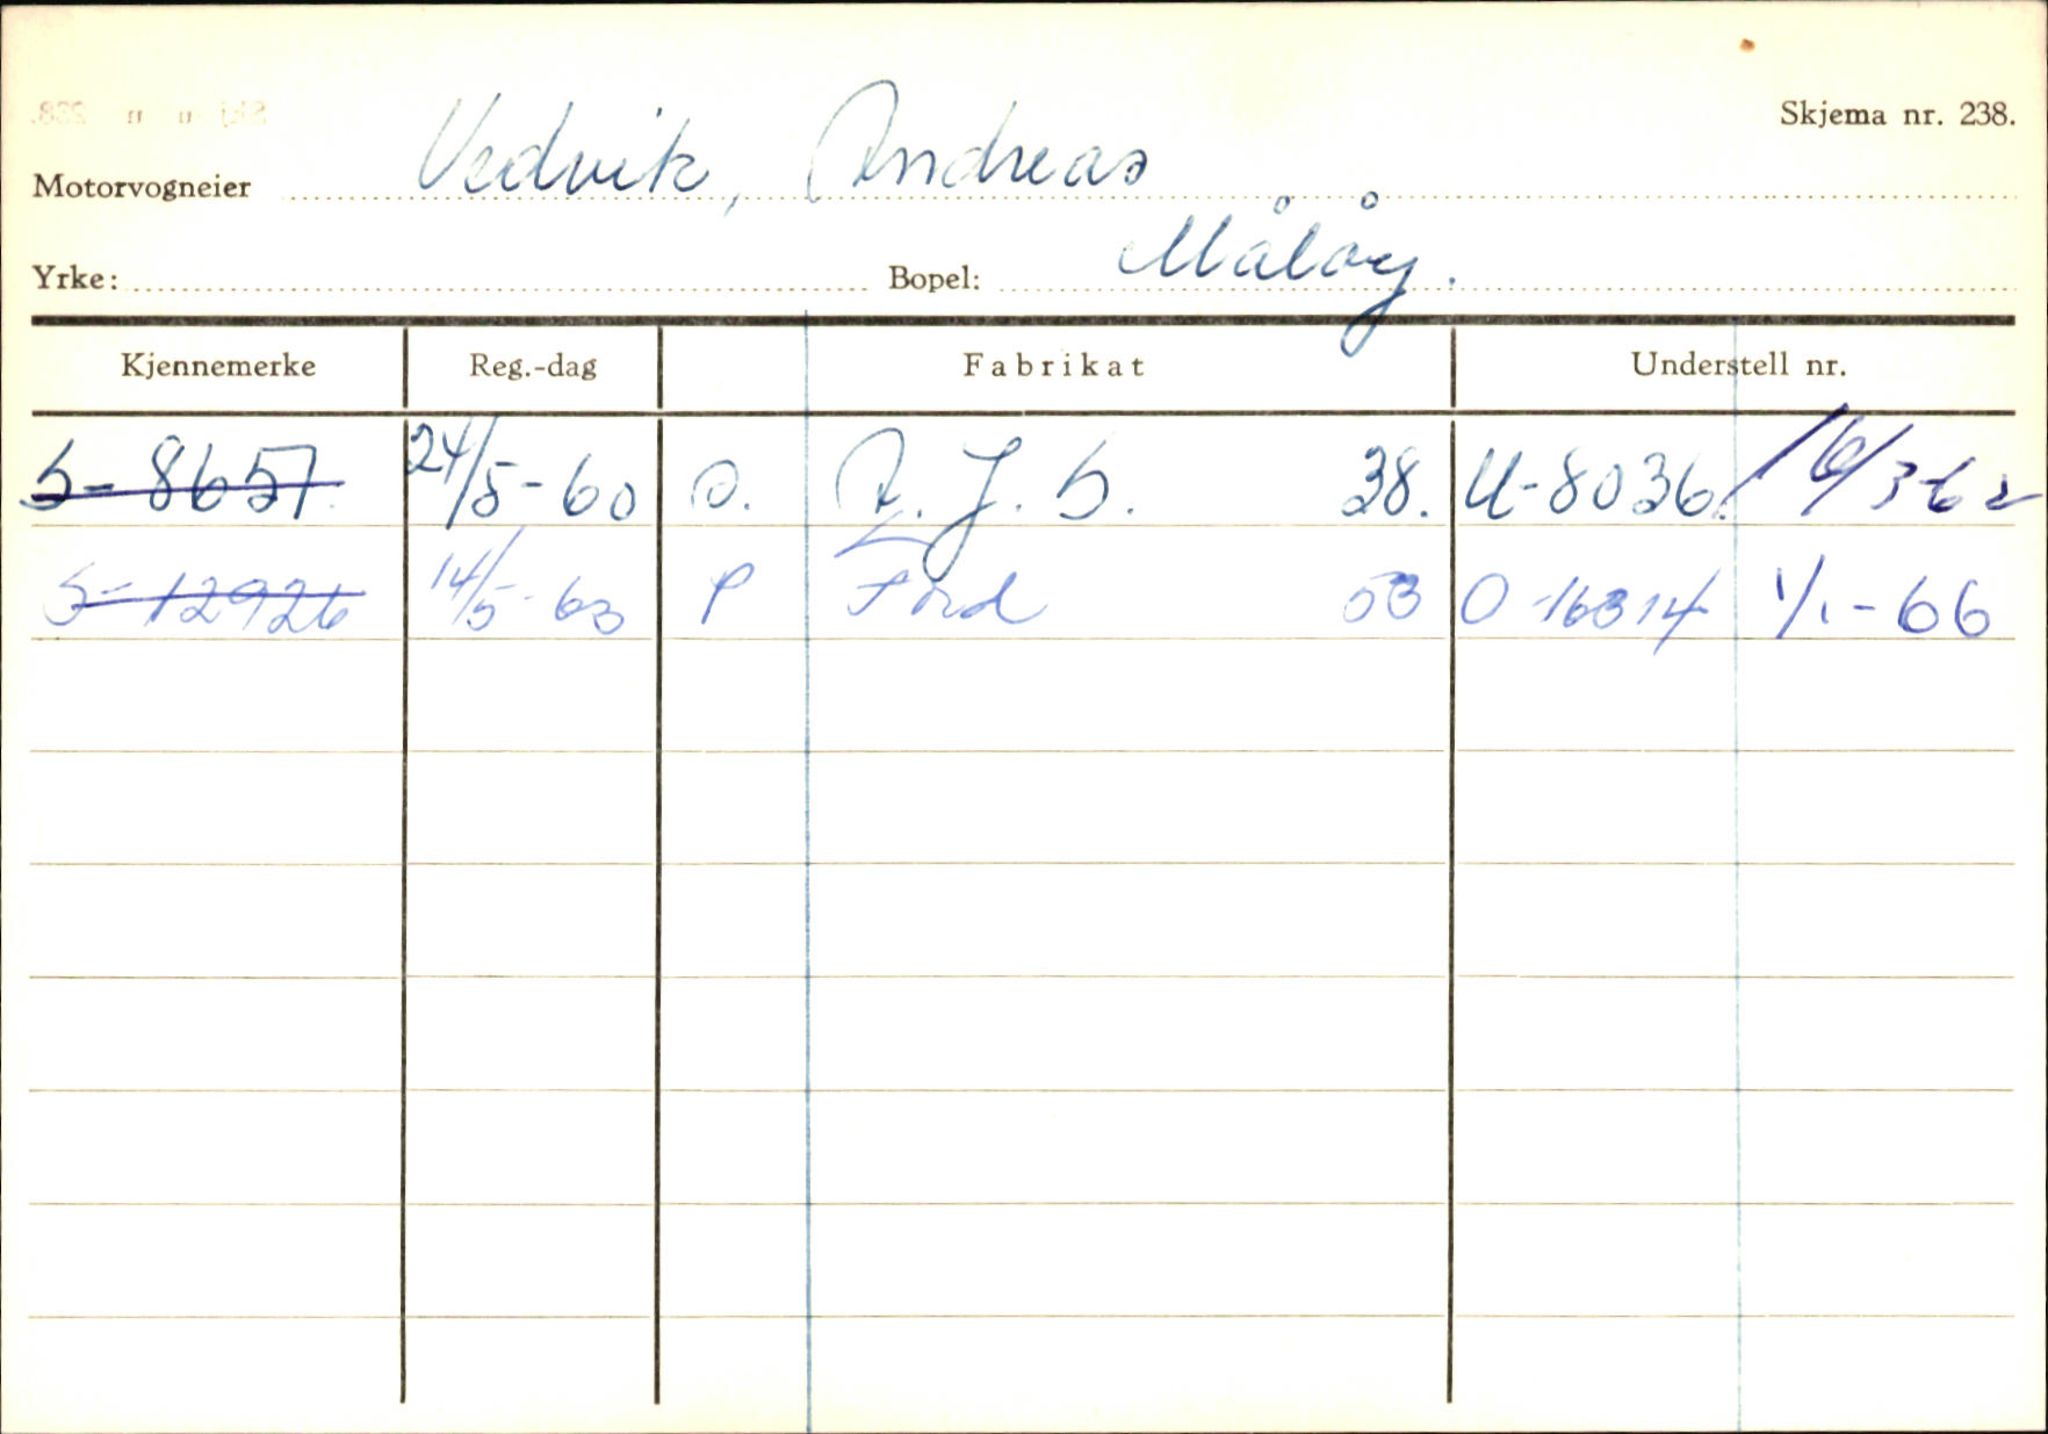 Skjema nr. 238.
Motorvogneier Vedvik, Andreas
Yrke: Bopel: Måløy.
Kjennemerke Reg.-dag Fabrikat Understell nr.
S-8657. 24/5-60 A. J. S. 38. U-8036. 16/3-62
S-12926 14/5-63 P Ford 53 O-16314 1/1-66